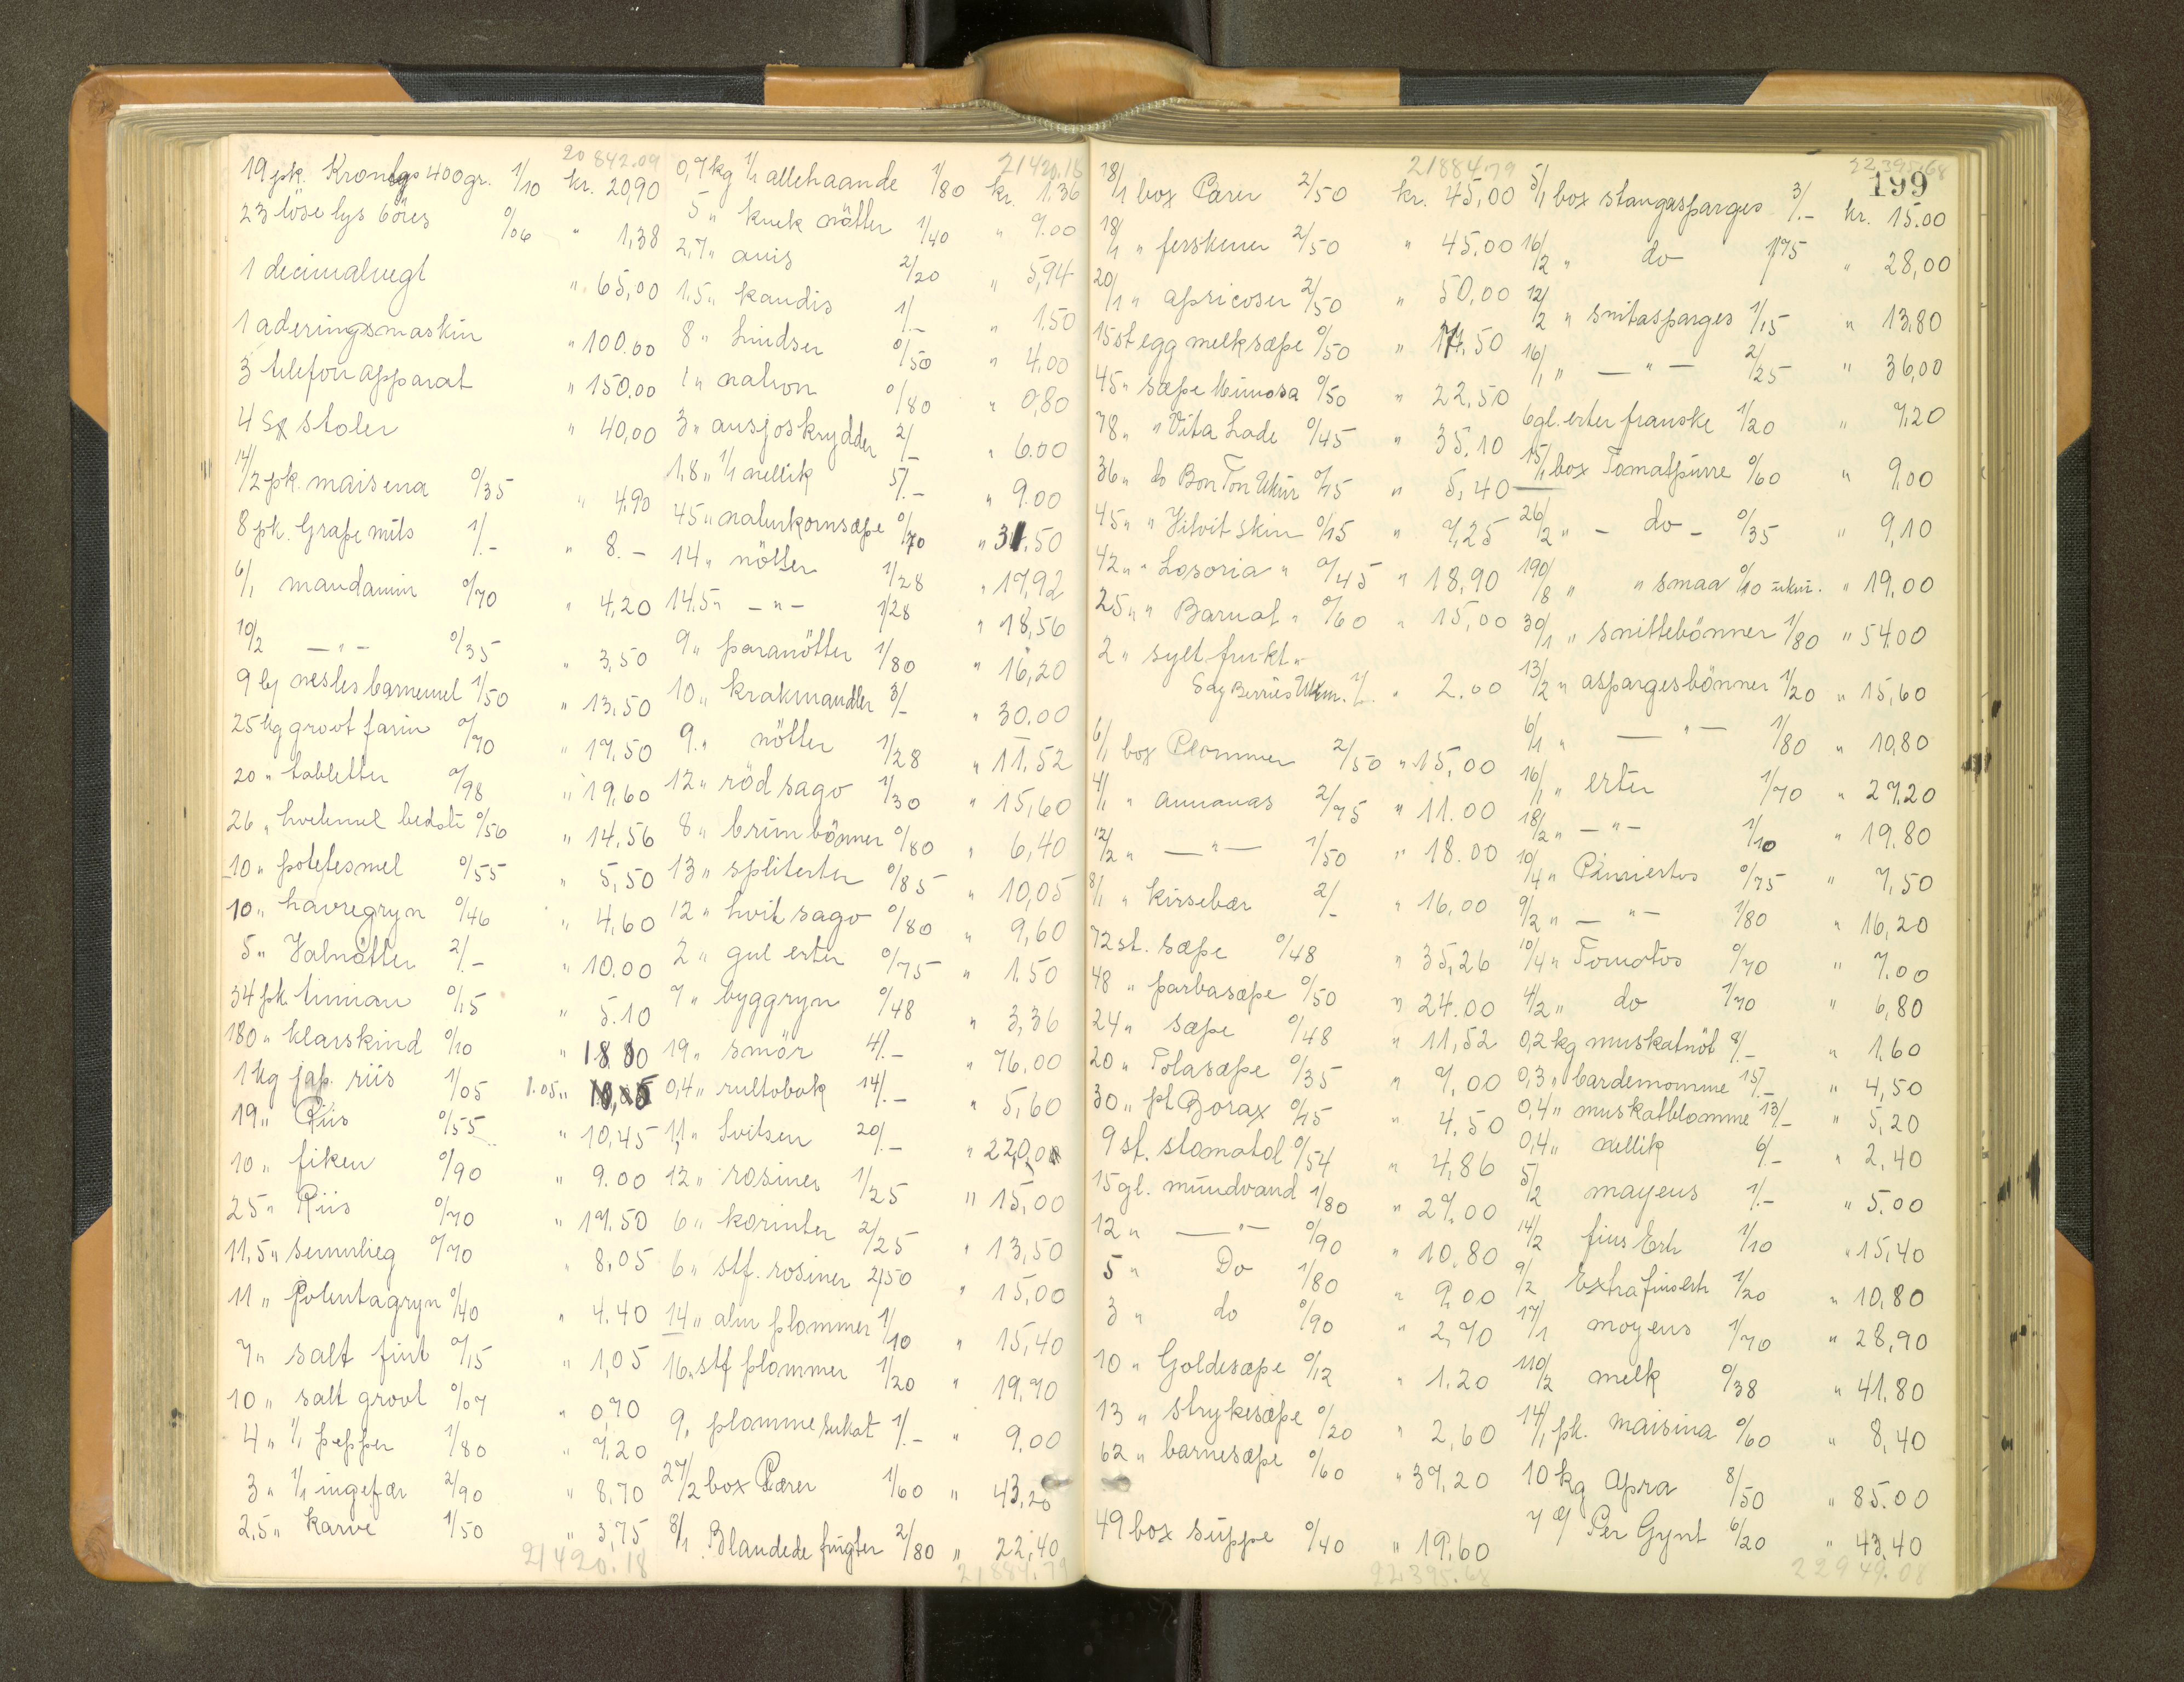 20842.09
19 pk. Kronlys 400gr. 1/10 kr. 20,90
23 löse lys 6öres 0/06 " 1,38
1 decimalvegt " 65,00
1 aderingsmaskin " 100.00
3 telefon apparat " 150,00
4 stoler " 40,00
14/2 pk. maisena 0/35 " 4,90
8 pk. Grape nuts 1/- " 8.-
6/1 mandamin 0/70 " 4,20
10/2 - " - 0/35 " 3,50
9 bj nesles barnemel 1/50 " 13,50
25 kg grovt farin 0/70 " 17,50
20 " tabletter 0/98 " 19,60
26 " hvetemel bedste 0/56 " 14,56
10 " potetesmel 0/55 " 5,50
10 " havregryn 0/46 " 4,60
5 " Valnötter 2/- " 10.00
34 pk timian 0/15 " 5.10
180 " klarskind 0/10 " 18.00
1 kg jap. riis 1/05 1.05 "
19 " Riis 0/55 " 10,45
10 " fiken 0/90 " 9.00
25 " Riis 0/70 " 17.50
11,5 " semulieg 0/70 " 8,05
11 " Polentagryn 0/40 " 4.40
7 " salt fint 0/15 " 1,05
10 " salt grovt 0/07 " 0,70
4 " 1/1 pepper 1/80 " 7,20
3 " 1/1 ingefær 2/90 " 8,70
2,5 " karve 1/50 " 3,75
21420.18
21420.18
0,7 kg 1/1 allehaande 1/80 kr. 1.36
5 " knek nötter 1/40 " 7.00
2,7 " anis 2/20 " 5,94
1,5 " kandis 1/- " 1.50
8 " Lindser 0/50 " 4.00
1 " natron 0/80 " 0,80
3 " ansjoskrydder 2/- " 6.00
1,8 " 1/1 nellik 5/- " 9.00
45 " naturkornsæpe 0/70 " 31.50
14 " nötter 1/28 " 17,92
14.5 " - " - 1/28 " 18,56
9 " paranötter 1/80 " 16,20
10 " krakmandler 3/- " 30.00
9 " nötter 1/28 " 11.52
12 " röd sago 1/30 " 15,60
8 " brun bönner 0/80 " 6,40
13 " spliterter 0/85 " 10,05
12 " hvit sago 0/80 " 9,60
2 " gul erter 0/75 " 1.50
7 " byggryn 0/48 " 3,36
19 " smör 4/- " 76.00
0,4 " rultobak 14/- " 5,60
11 " Svitsen 20/- " 220,00
12 " rosiner 1/25 " 15,00
6 " korinter 2/25 " 13,50
6 " stf. rosiner 2/50 " 15,00
14 " alm plommer 1/10 " 15,40
16 " stf plommer 1/20 " 19,70
9 " plomme sukat 1/- " 9.00
27/2 box Pærer 1/60 " 43,20
8/1 Blandede frugter 2/80 " 22,40
21884.79
21884.79
18/1 box Pærer 2/50 kr. 45,00
18/1 " ferskener 2/50 " 45.00
20/1 " apricoser 2/50 " 50,00
15 st egg melksæpe 0/50 " 17.50
45 " sæpe Mimosa 0/50 " 22,50
78 " " Vita Lade 0/45 " 35.10
36 " do Bon Ton Ukur 0/15 " 5,40
45 " " Vitvit skin 0/15 " 7,25
42 " " Losoria " 0/45 " 18,90
25 " " Barnat " 0/60 " 15,00
2 " sylt frukt "
Say Berries Ukur. 1/- " 2.00
6/1 box Plommer 2/50 " 15,00
4/1 " annanas 2/75 " 11.00
12/2 " - " - 1/50 " 18.00
8/1 " kirsebær 2/- " 16,00
72 st. sæpe 0/48 " 35,26
48 " parbasæpe 0/50 " 24.00
24 " sæpe 0/48 " 11,52
20 " Tolasæpe 0/35 " 7,00
30 " pk Borax 0/15 " 4.50
9 st. stomatol 0/54 " 4,86
15 gl. mundvand 1/80 " 27,00
12 " - " - 0/90 " 10.80
5 " Do 1/80 " 9,00
3 " do 0/90 " 2,70
10 " Goldesæpe 0/12 " 1.20
13 " strykesæpe 0/20 " 2,60
62 " barnesæpe 0/60 " 37,20
49 box suppe 0/40 " 19,60
22395.68
22395.68
199
5/1 box stangasparges 3/- kr. 15.00
16/2 " do 1/75 " 28,00
12/2 " snitasparges 1/15 " 13,80
16/1 " - " - 2/25 " 36,00
6 gl. erter franske 1/20 " 7,20
15/1 box Tomatpurre 0/60 " 9,00
26/2 " - do - 0/35 " 9,10
190/8 " " smaa 0/10 ukur. " 19,00
30/1 " snittebönner 1/80 " 54.00
13/2 " aspargesbönner 1/20 " 15,60
6/1 " - " - 1/80 " 10,80
16/1 " erter 1/70 " 27.20
18/2 " - " - 1/10 " 19.80
10/4 " Pimiertos 0/75 " 7,50
9/2 " - " - 1/80 " 16,20
10/4 " Tomatos 0/70 " 7.00
4/2 " do 1/70 " 6,80
0,2 kg muskatnöt 8/- " 1.60
0,3 " kardemomme 15/- " 4,50
0,4 " muskatblomme 13/- " 5,20
0,4 " nellik 6/- " 2.40
5/2 mayens 1/- " 5.00
14/2 fins Erh 1/10 " 15,40
9/2 Extrafinserh 1/20 " 10,80
17/1 moyens 1/70 " 28,90
110/2 melk 0/38 " 41,80
14/1 pk. maisina 0/60 " 8,40
10 kg Apra 8/50 " 85.00
7 Per Gynt 6/20 " 43,40
22949.08